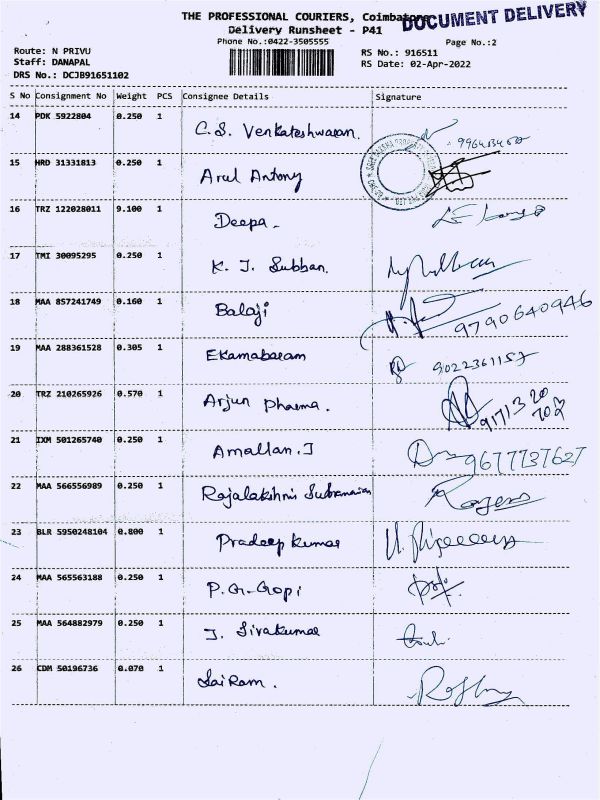 THE PROFESSIONAL COURIERS, Coimbatore
DOCUMENT DELIVERY
Delivery Runsheet - P41
Phone No.:0422-3505555
Page No.:2
Route: N PRIVU
RS No.: 916511
Staff: DANAPAL
RS Date: 02-Apr-2022
DRS No.: DCJB91651102
S No Consignment No Weight PCS Consignee Details Signature
14 PDK 5922804 0.250 1 C.S. Venkateshwaran.
15 HRD 31331813 0.250 1 Arul Antony
16 TRZ 122028011 9.100 1 Deepa.
17 TMI 30095295 0.250 1 K. J. Subban.
18 MAA 857241749 0.160 1 Balaji 9790640946
19 MAA 288361528 0.305 1 Ekambaram 9022361157
20 TRZ 210265926 0.570 1 Arjun pharma.
21 IXM 501265740 0.250 1 Amallan.J 9677737627
22 MAA 566556989 0.250 1 Rajalakshmi Subramanian
23 BLR 5950248104 0.800 1 Pradeep kumar
24 MAA 565563188 0.250 1 P.G-Gopi
25 MAA 564882979 0.250 1 J. Sivakumar
26 CDM 50196736 0.070 1 Sai Ram.